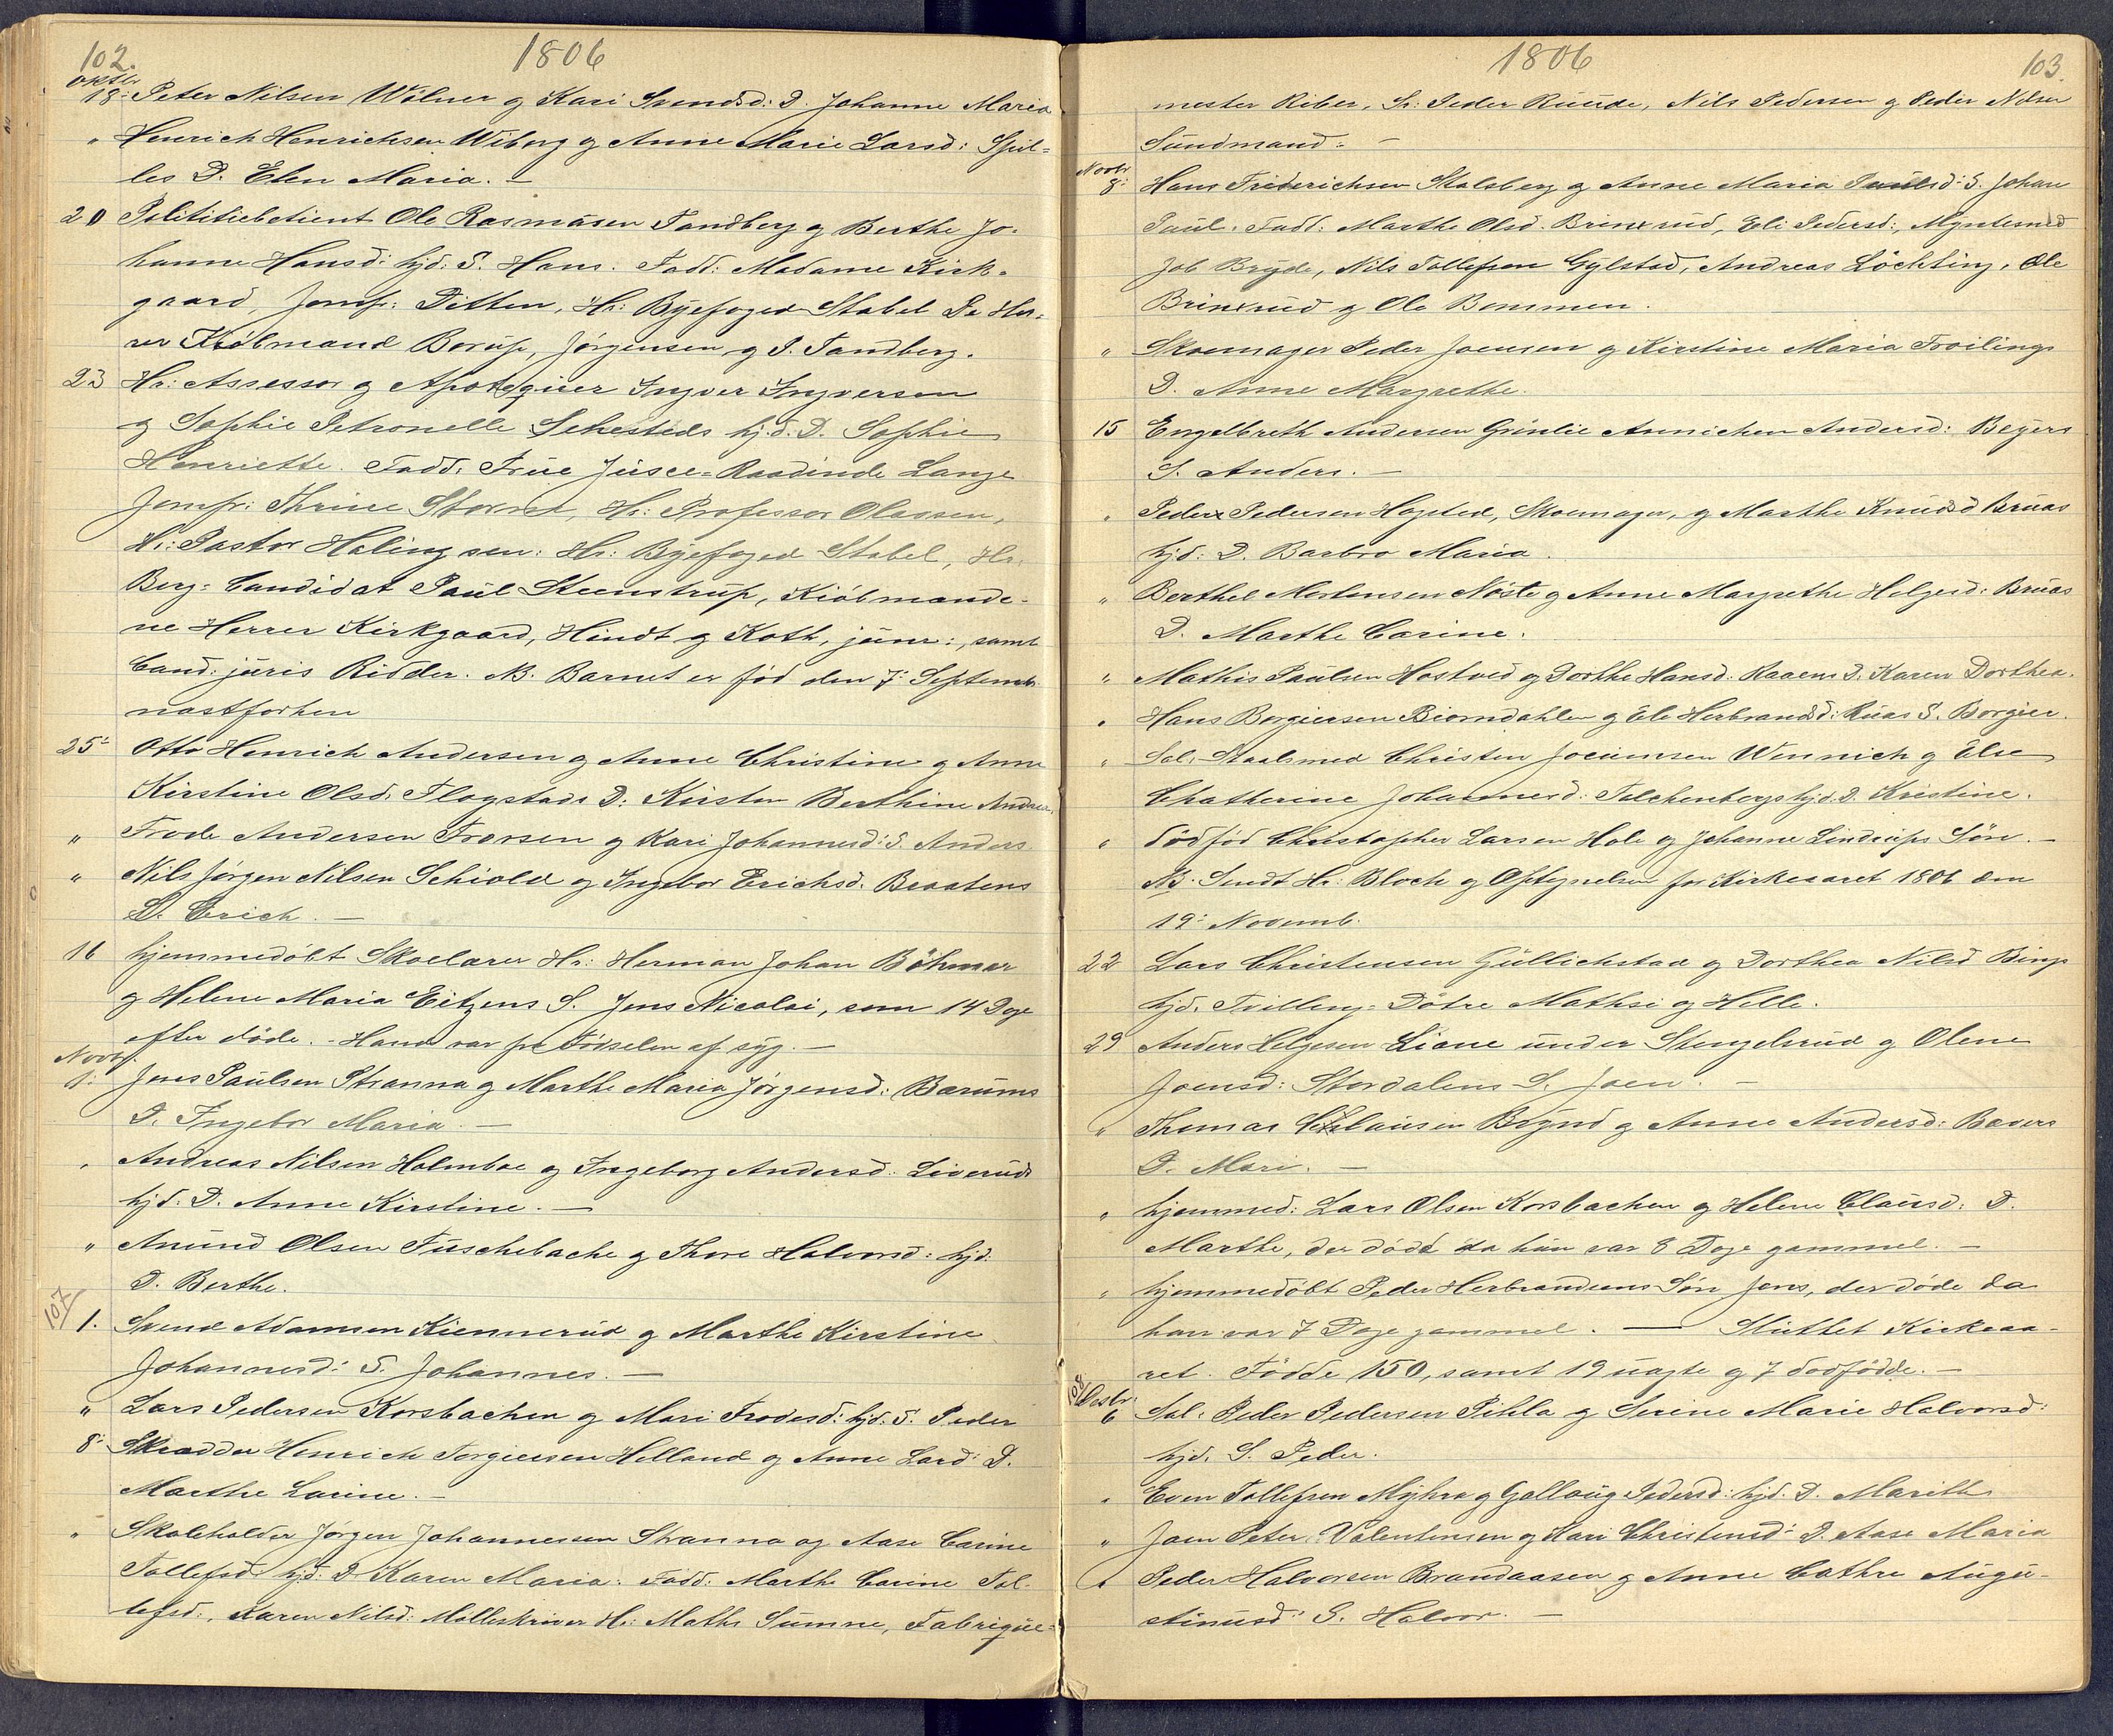 102.
1806
oktbr
18: Peter Nilsen Wölner og Kari Svendsd: D. Johanne Maria
" Henrich Henrichsen Wiborg og Anne Marie Larsd: Spil-
les D. Elen Maria. —
20 Polititiebetient Ole Rasmusen Tandberg og Berthe Jo-
hanne Hansd: hjd: S. Hans. Fadd: Madame Kirk-
gaard, Jomfr: Ditten, Hr: Byefoged Stabel De Her-
rer Kiöbmand Borup, Jörgensen og P. Tandberg.
23 Hr: Assessor og Apotequer Ingver Ingversen
og Sophie Petronelle Sehesteds hj.d. D. Sophie
Henriette. Fadd. Frue Jusce-Raadinde Lange
Jomfr: Thrine Stormd, Hr: Professor Olavsen,
Hr: Pastor Haling sen: Hr: Byefoged Stabel, Hr.
Berg-Candidat Paul Steenstrup, Kiöbmænde-
ne Herrer Kirkgaard, Hindt og Koth, junr:, samt
Cand: juris Ridder. NB. Barnet er fød den 7: Septemb.
nastforhen
25: Otto Henrich Andersen og Anne Christine og Anne
Kirstine Olsd. Flagstads D: Kirsten Berthine Andrea.
" Frode Andersen Frorsen og Kari Johannesd: S. Anders
" Nils Jörgen Nilsen Schiold og Ingebor Erichsd. Braatens
S. Erich. —
16 hjemmedöbt Skoelærer Hr: Herman Johan Böhmer
og Helene Maria Eitzens S. Jens Nicolai, som 14 Dage
efter döde. - Hand var fra Födselen af syg. —
Novbr.
1: Jens Paulsen Stranna og Marthe Maria Jörgensd: Bærums
D. Ingebor Maria. —
" Andreas Nilsen Holmboe og Ingeborg Andersd. Liveruds
hjd: D. Anne Kirstine. —
" Anund Olsen Tuschebache og Thore Halvorsd: hjd.
D. Berthe.
107/
1. Svend Adamsen Kiennerud og Marthe Kirstine
Johannesd: S. Johannes. —
" Lars Pedersen Korsbachen og Mari Frodesd: hjd: S. Peder
8: Skrædder Henrich Torgiersen Helland og Anne Larsd: D.
Marthe Larine. —
" Skoleholder Jörgen Johannessen Stranna og Aase Carine
Tollefsd: hjd: D. Karen Maria. Fadd: Marthe Carine Tol-
lefsd:, Karen Nilsd: Mölleskriver Hr: Maths Sumne, Fabrique-
1806
103.
mester Riber, Sr: Peder Ruude, Nils Pedersen og Peder Nilsen
Sundmand. —
Novbr
8: Hans Friderichsen Stalsberg og Anne Maria Paulsd: S. Johan
Paul. Fadd: Marthe Olsd. Brinxrud, Eli Pedersd:, Myntesmed
Job Bryde, Nils Tollefsen Gylstad, Andreas Löchting, Ole
Brinxrud og Ole Bommen.
" Skoemager Peder Joensen og Kirstine Maria Troilings
D. Anne Margrethe.
15 Engelbreth Andersen Grönlie Annichen Andersd: Beyers
S. Anders. —
" Peder Pedersen Hagsted, Skoemager, og Marthe Knudsd Bruas
hjd: D. Barbro Maria.
" Berthel Mortensen Nöste og Anne Margrethe Helgesd: Bruas
D. Marthe Carine.
" Mathis Paulsen Hostved og Dorthe Hansd. Raaens D. Karen Dorthea.
" Hans Borgiersen Biorndahlen og Ele Herbrandsd: Ruas S. Borgier.
" Sal. Staalsmed Christen Jocumsen Wennich og Else
Chatherine Johannesd: Falchenbergs hj.d. D. Kristine.
" dödföd Christopher Larsen Hole og Johanne Lindrups Sön. —
NB: Sendt Hr: Bloch og Optegnelsen for Kirkeaaret 1806 den
19: Novemb.
22 Lars Christensen Gullichstad og Dorthea Nilsd Bings
hjd. Tvilling-Dötre Mathsi og Helle.
29 Anders Helgesen Liane under Stengelsrud og Olene
Joensd: Stordalens S. Joen. —
" Thomas Clausen Brynd og Anne Andersd: Bævers
D. Mari. —
" hjemmed: Lars Olsen Korsbachen og Helene Clausd: D.
Marthe, der döde da hun var 8 Dage gammel. —
" hjemmedöbt Peder Herbrandsens Sön Jens, der döde da
han var 7 Dage gammel. — Sluttet Kirkeaa-
ret. Födde 150, samt 19 uægte og 7 dodfödde. —
108/
Desbr.
6 Sal. Peder Pedersen Pihla og Serine Marie Halvorsd:
hjd. S. Peder.
" Even Tollefsen Myhra og Gollaug Pedersd: hjd. D. Marithe
" Joen Peter Valentinsen og Kari Christensd: D. Aase Maria
" Peder Halvorsen Brandaasen og Anne Cathre Augu-
stinusd: S. Halvor. —